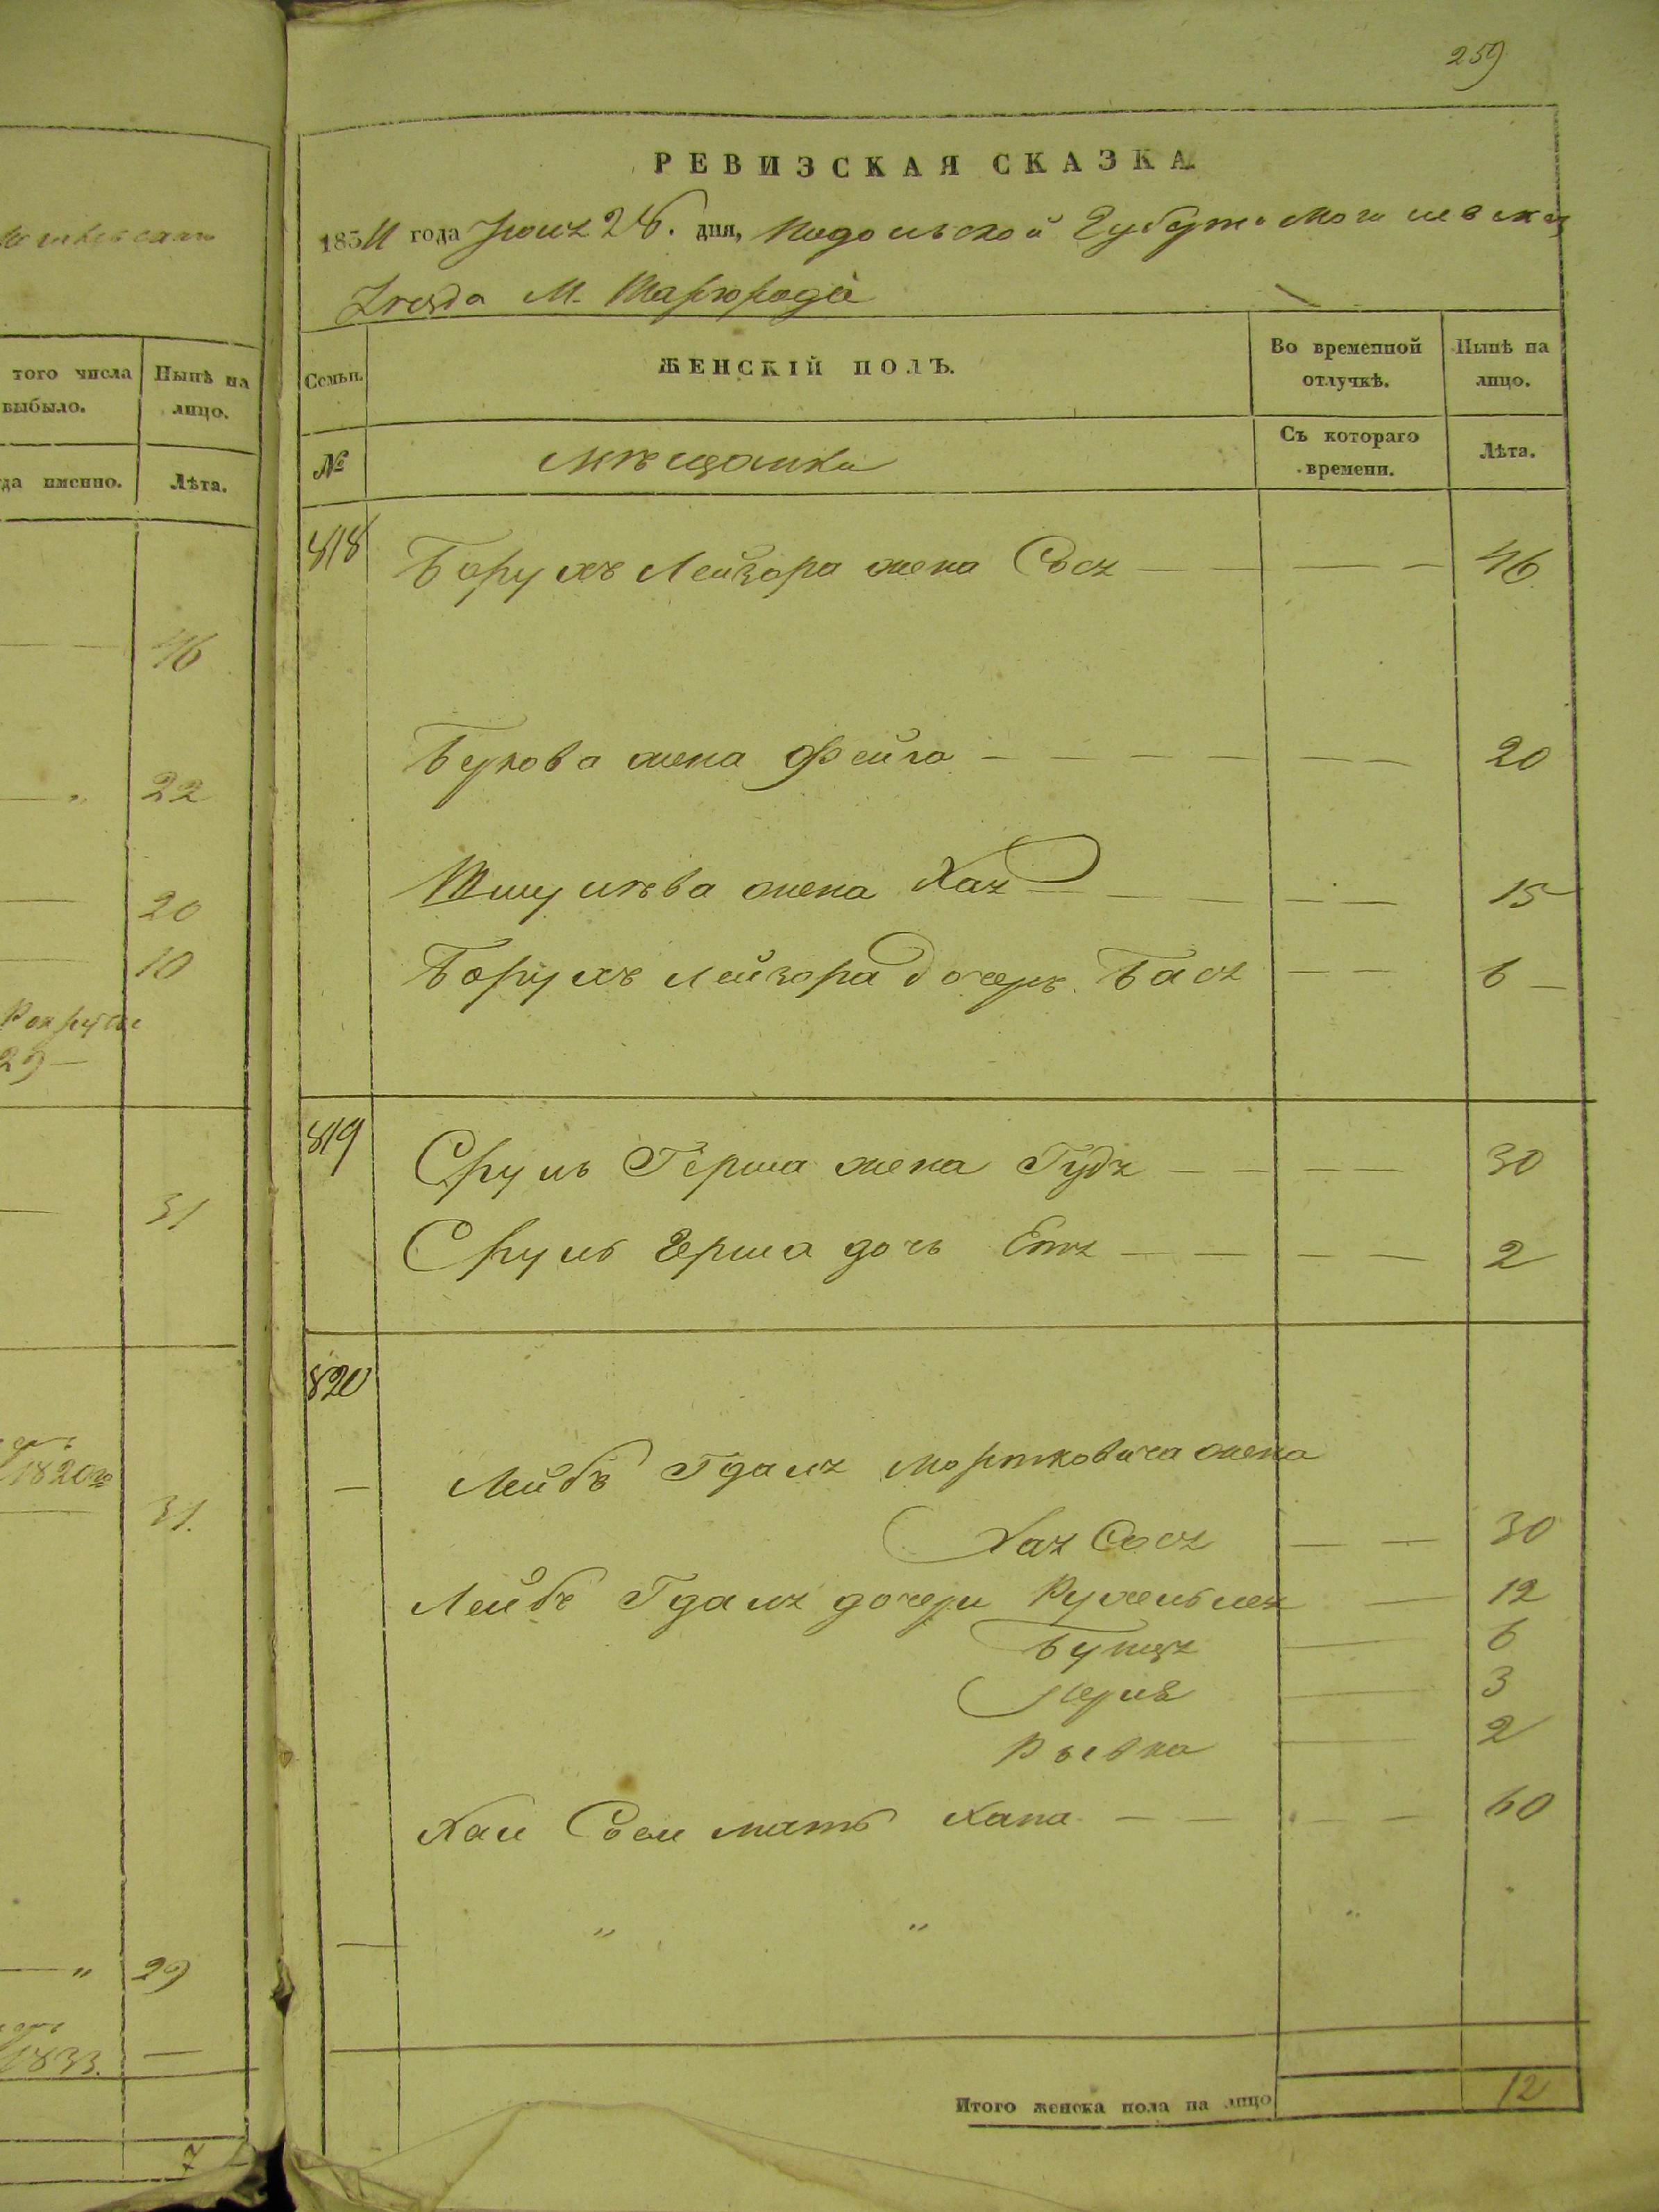 259
РЕВИЗСКАЯ СКАЗКА
185 года Июня 28. дня, Подольской Губерт. Могилевска
Уезда М. Шаргорода
того числа
выбыло.
Нынѣ на
лицо.
Семьи.
ЖЕНСКІЙ ПОЛЪ.
Во временной
отлучкѣ.
Нынѣ на
лицо.
да именно.
Лѣта.
№
мѣщанки
Съ котораго
времени.
Лѣта.
818 Борухъ Лейзора жена Сося — — — — 46
46
Букова жена Фейга — — — — — — 20
22
жена Хая — — — — — 15
20
Борухъ Лейзора дочерь Бася — — 6 —
10
29 —
819 Сруль Герша жена Гудя — — — — 30
Сруль Герша дочь Етя — — — — 2
31
820
Лейбъ Гдаля Мортковича жена
1820го
31.
Хая Сося — — 30
Лейбъ Гдаля дочери Рухельлея — 12
Бунця — 6
Перля — 3
Рывка — 2
Хаи Соси мать Хана — — — — 60
" " "
— " 29
1833. —
Итого женска пола на лицо 12
7